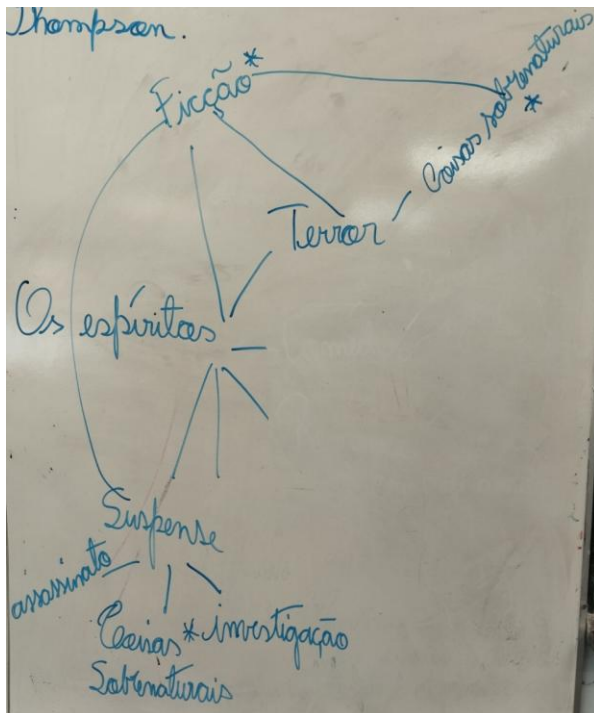 Thompson.
Ficção*
Coisas sobrenaturais
*
Terror
Os espíritos
Suspense
assassinato
Coisas * investigação
Sobrenaturais